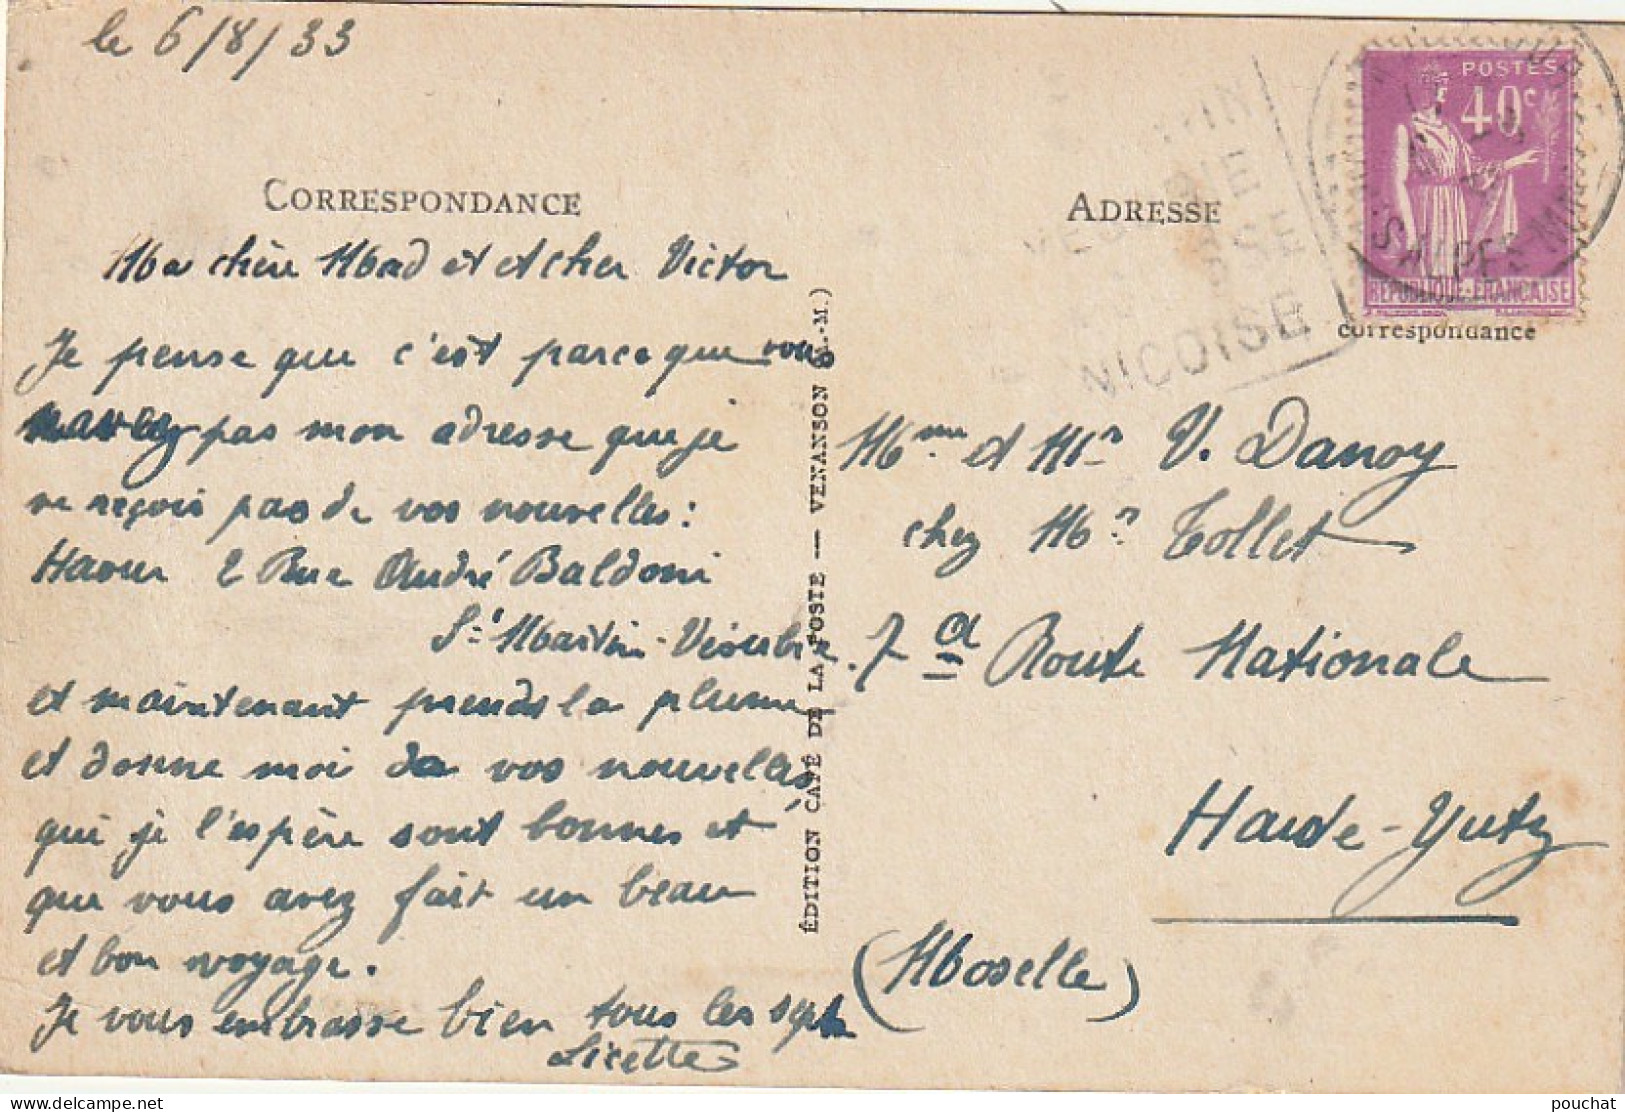 le 6/8/33
CORRESPONDANCE
Ma chère Mad et et cher Victor
Je pense que c'est parce que vous
navez pas mon adresse que je
ne reçois pas de vos nouvelles :
Haour 2 Rue André Baldoni
St Martin-Vésubie.
et maintenant prends la plume
et donne moi de vos nouvelles
qui je l'espère sont bonnes et
que vous avez fait un beau
et bon voyage.
Je vous embrasse bien tous les sept
Licette
ÉDITION CAFÉ DE LA POSTE — VENANSON (A.-M.)
ADRESSE
NICOISE
POSTES
40c
REPUBLIQUE-FRANCAISE
S. ALPES MMES
correspondance
Mme et Mr V. Danoy
chez Mr Tollet
7 a Route Nationale
Haute-Yutz
(Moselle)
pouchat